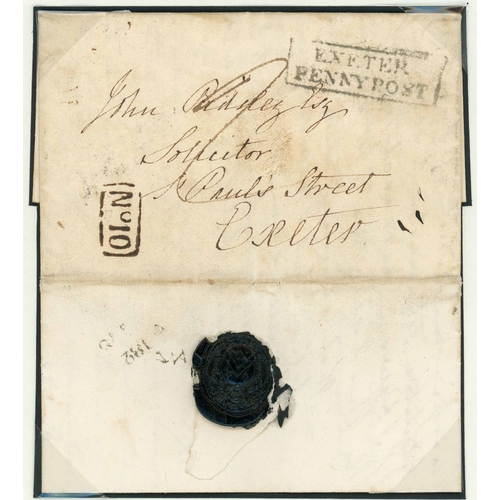 EXETER
PENNY POST
John Esq
Solicitor
St Paul's Street
Exeter
No 10